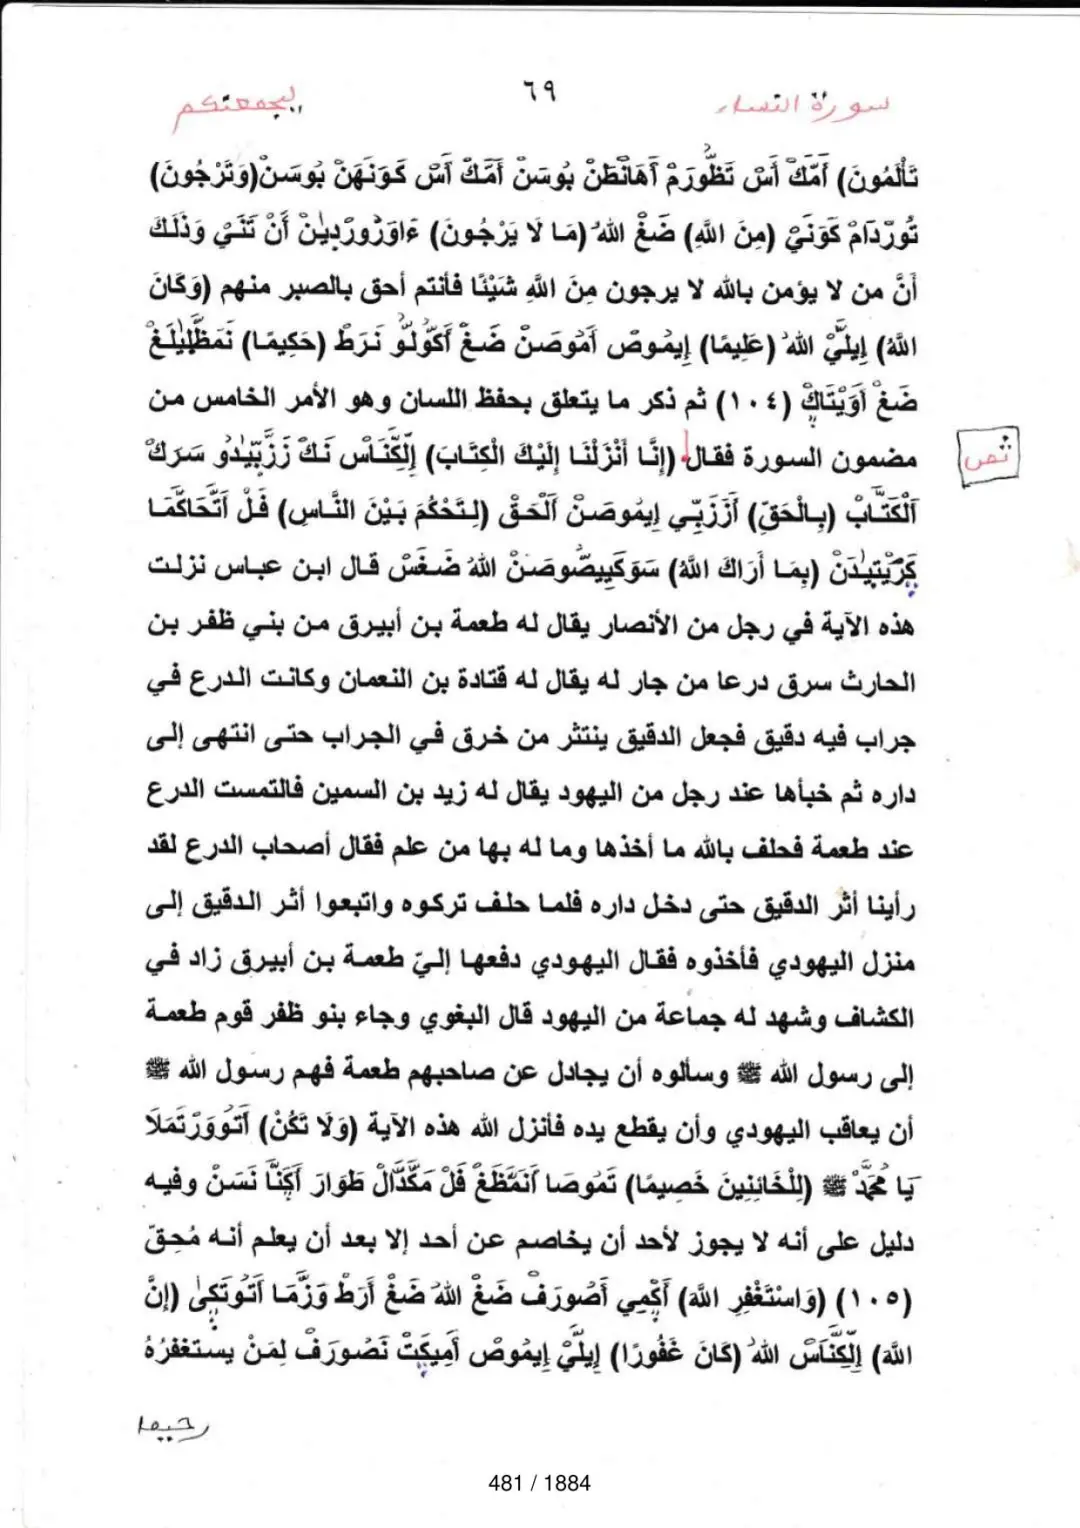 ليجمعنكم ٦٩ سورة النساء
تَأْلَمُونَ) أَمَّكْ أَسْ تَظُّورَمْ أَهَانْطَنْ بُوسَنْ أَمَّكْ أَسْ كَوَنَهَنْ بُوسَنْ(وَتَرْجُونَ)
تُورْدَامْ كَوَنَيْ (مِنَ اللَّهِ) ضَغْ اللهُ (مَا لَا يَرْجُونَ) ءَاوَرْوُرْدِيٰنْ أَنْ تَنَيْ وَذَلَكَ
أَنَّ من لا يؤمن بالله لا يرجون مِنَ اللَّهِ شَيْئًا فأنتم أحق بالصبر منهم (وَكَانَ
اللَّهُ) إِيلَيْ اللهُ (عَلِيمًا) إِيمُوصْ أَمُوصَنْ ضَغْ أَكُولُّو نَرَطْ (حَكِيمًا) نَمَظَّلِيٰلَغْ
ضَغْ أَوَيْتَاكْ (١٠٤) ثم ذكر ما يتعلق بحفظ اللسان وهو الأمر الخامس من
مضمون السورة فقال (إِنَّا أَنْزَلْنَا إِلَيْكَ الْكِتَابَ) إِلَكِّنَاسْ نَكْ زَزَّبِّيٰدُو سَرَكْ
اَلْكَتَّابْ (بِالْحَقِّ) أَزَزَبِّي إِيمُوصَنْ اَلْحَقْ (لِتَحْكُمَ بَيْنَ النَّاسِ) فَلْ أَتَّحَاكَّمَا
(بِمَا أَرَاكَ اللَّهُ) سَوَكَيِيصُّوصَنْ اللهُ ضَغَسْ قال ابن عباس نزلت
هذه الآية في رجل من الأنصار يقال له طعمة بن أبيرق من بني ظفر بن
الحارث سرق درعا من جار له يقال له قتادة بن النعمان وكانت الدرع في
جراب فيه دقيق فجعل الدقيق ينتثر من خرق في الجراب حتى انتهى إلى
داره ثم خبأها عند رجل من اليهود يقال له زيد بن السمين فالتمست الدرع
عند طعمة فحلف بالله ما أخذها وما له بها من علم فقال أصحاب الدرع لقد
رأينا أثر الدقيق حتى دخل داره فلما حلف تركوه واتبعوا أثر الدقيق إلى
منزل اليهودي فأخذوه فقال اليهودي دفعها إليّ طعمة بن أبيرق زاد في
الكشاف وشهد له جماعة من اليهود قال البغوي وجاء بنو ظفر قوم طعمة
إلى رسول الله ﷺ وسألوه أن يجادل عن صاحبهم طعمة فهم رسول الله ﷺ
أن يعاقب اليهودي وأن يقطع يده فأنزل الله هذه الآية (وَلَا تَكُنْ) أَتُووَرْتَمَلَا
يَا مُحَمَّدْ ﷺ (لِلْخَائِنِينَ خَصِيمًا) تَمُوصَا أَنَمَّظَغْ فَلْ مَكَّدَالْ طَوَارَ أَكِنَّا نَسَنْ وفيه
دليل على أنه لا يجوز لأحد أن يخاصم عن أحد إلا بعد أن يعلم أنه مُحِقّ
(١٠٥) (وَاسْتَغْفِرِ اللَّهَ) أَكْمِي أَصُورَفْ ضَغْ اللهُ ضَغْ أَرَطْ وَزَّمَا أَتُوتَكِىٰ (إِنَّ
اللَّهَ) إِلَكِّنَاسْ اللهُ (كَانَ غَفُورًا) إِيلَيْ إِيمُوصْ أَمِيكَتْ نَصُورَفْ لِمَنْ يستغفرُهُ
رحيما
481 / 1884